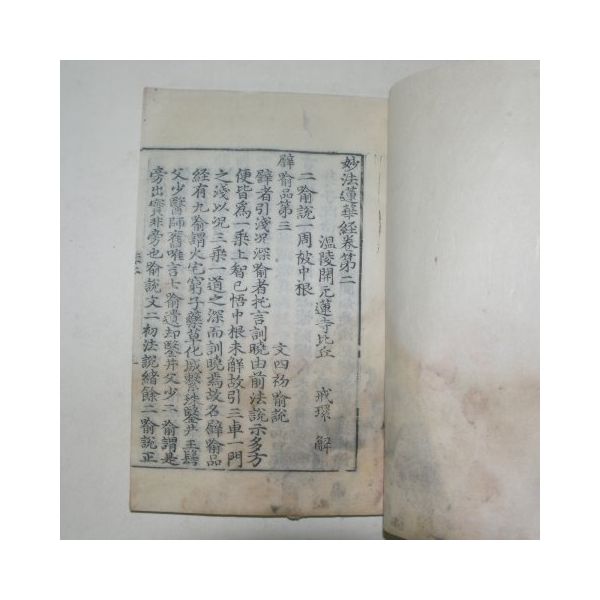 妙法蓮華經卷第二
溫陵開元蓮寺比丘 戒環 解
二喩說一周被中根
譬喩品第三 文四初喩說
譬者引淺況深喩者托言訓曉由前法說示多方
便皆爲一乘上智已悟中根未解故引三車一門
之淺以況三乘一道之深而訓曉焉故名譬喩品
經有九喩謂火宅窮子藥草化城繫珠鑿井王髻
父少醫師舊唯言七喩遺却鑿井父少二喩謂是
旁出實非旁也喩說文二初法說緖餘二喩說正